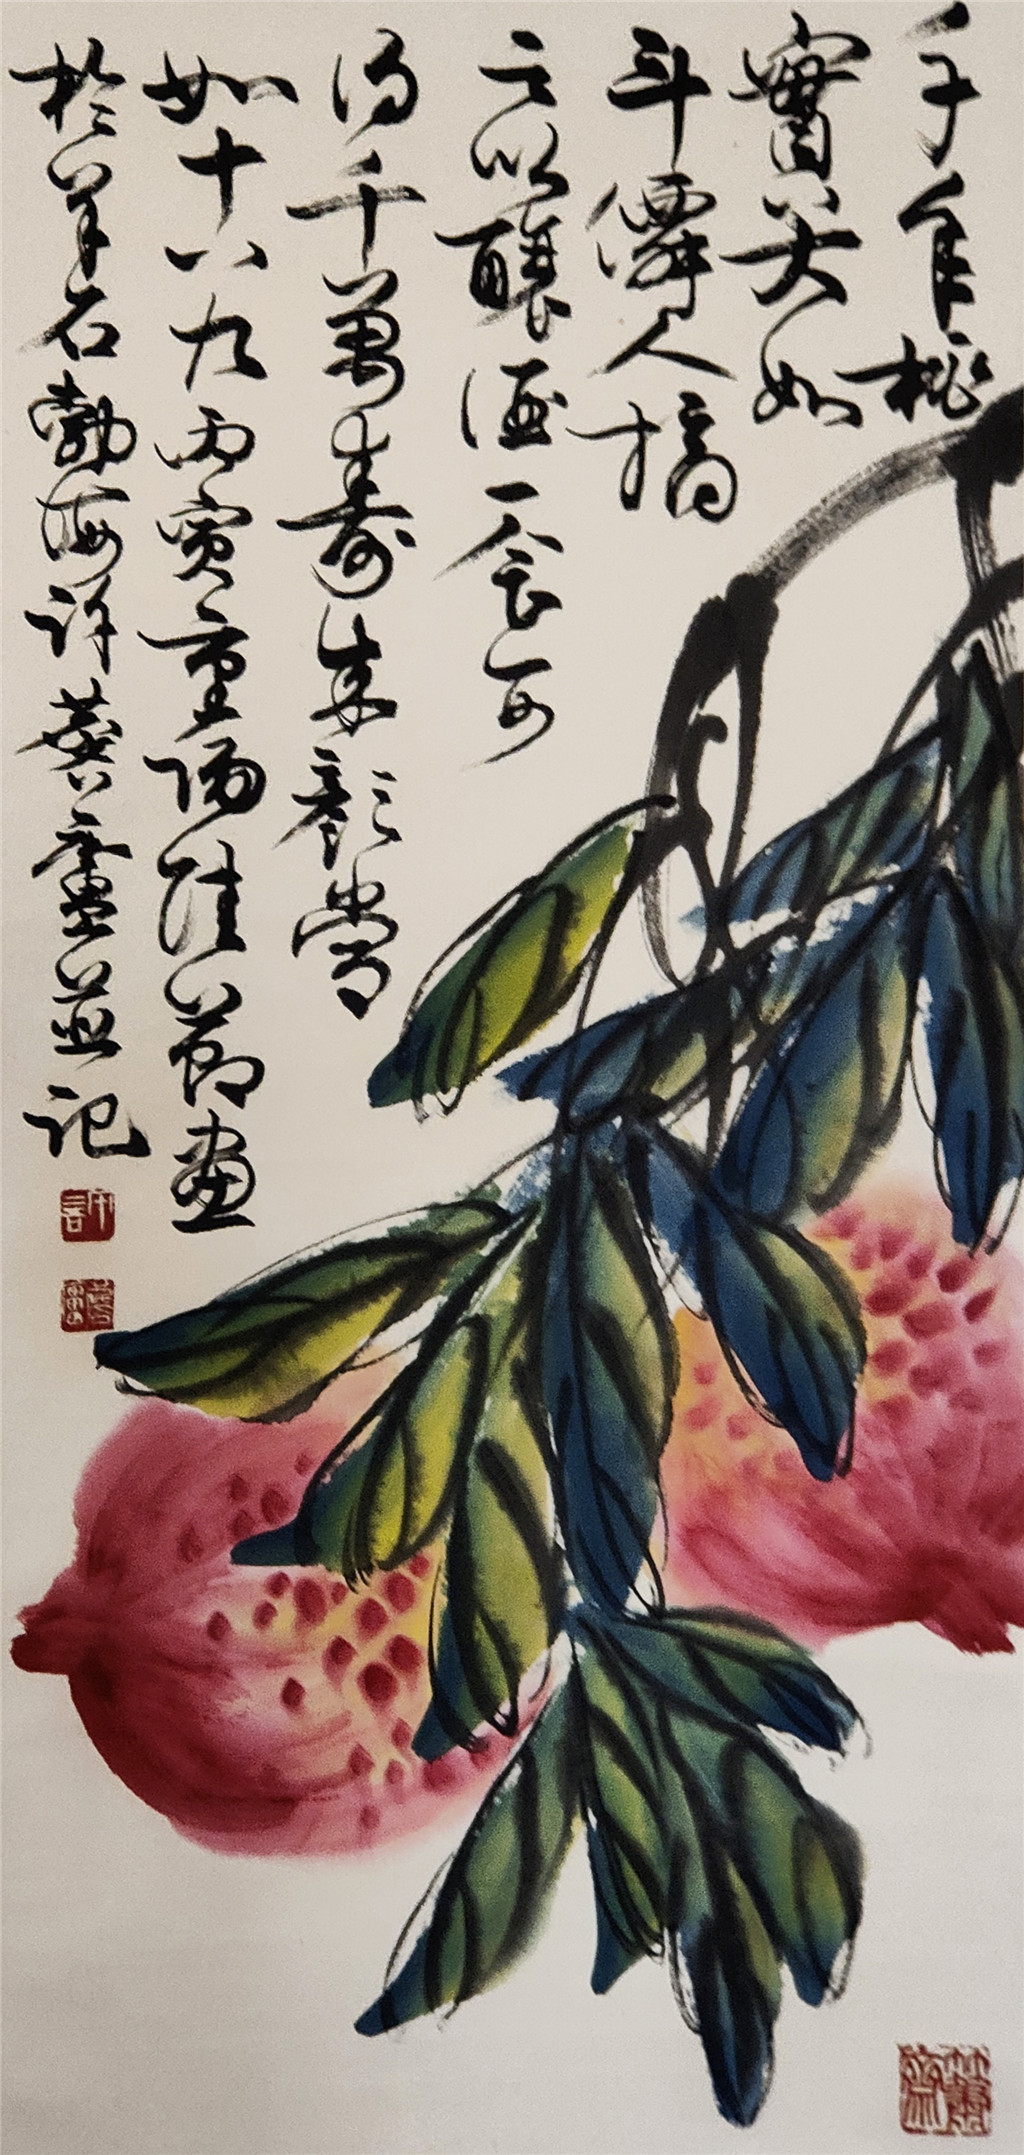 千年桃
實大如
斗僊人摘
之以釀酒一食可
得千萬壽朱顏常
如十八九丙寅重陽佳節畫
於羊石勃海許葵廬並記